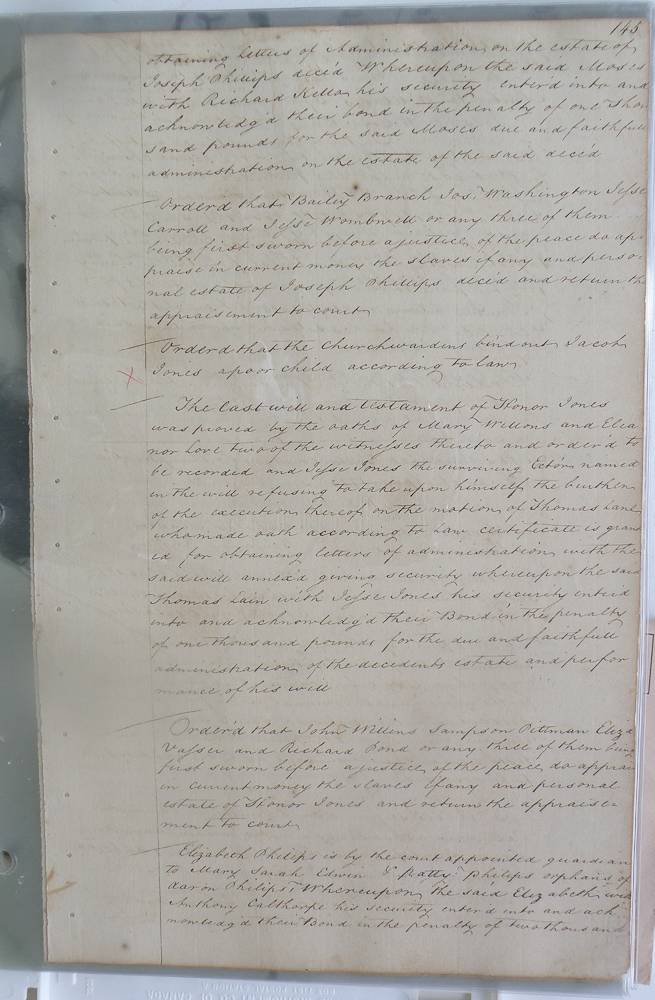 145
obtaining letters of Administration on the estate of
Joseph Phillips dec'd Whereupon the said Moses
with Richard Kello his security enter'd into and
acknowledg'd their bond in the penalty of one Thou
sand pounds for the said Moses due and faithfull
administration on the estate of the said dec'd
Order'd that Bailey Branch Jos. Washington Jesse
Carroll and Jesse Wombwell or any three of them
being first sworn before a justice of the peace do ap
praise in current money the slaves if any and perso
nal estate of Joseph Phillips dec'd and return the
appraisement to court
Order'd that the Churchwardens bind out Jacob
Jones a poor child according to law
The last will and testament of Honor Jones
was proved by the oaths of Mary Wellons and Elea
nor Love two of the witnesses thereto and order'd to
be recorded and Jesse Jones the surviving Ector named
in the will refusing to take upon himself the burthen
of the execution thereof on the motion of Thomas Lane
who made oath according to Law certificate is grant
ed for obtaining letters of administration with the
said will annex'd giving security whereupon the said
Thomas Lain with Jesse Jones his security enter'd
into and acknowledg'd their Bond in the penalty
of one thousand pounds for the due and faithfull
administration of the decedents estate and perfor
mance of his will
Order'd that John Wellins Sampson Pittman Eliz'd
Vasser and Richard Pond or any three of them being
first sworn before a justice of the peace do appraise
in current money the slaves if any and personal
estate of Honor Jones and return the appraise=
ment to court
Elizabeth Philips is by the court appointed guardian
to Mary Sarah Edwin & Patty Philips orphans of
Aaron Philips Whereupon the said Elizabeth with
Anthony Calthorpe his security enter'd into and ack
nowledg'd their Bond in the penalty of two thousand